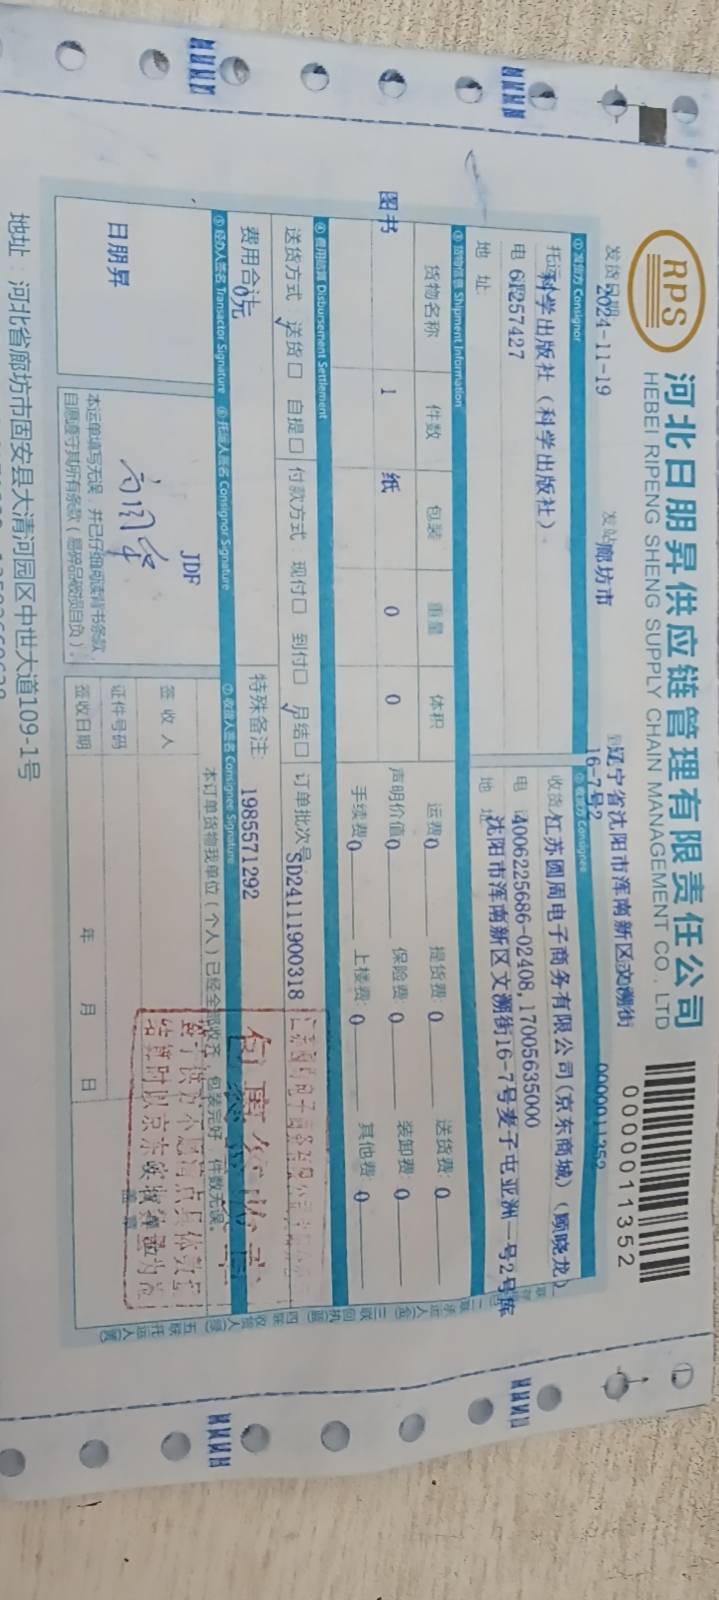 RPS
河北日朋昇供应链管理有限责任公司
HEBEI RIPENG SHENG SUPPLY CHAIN MANAGEMENT CO., LTD
0000011352
0000011352
发货日期 2024-11-19
发站 廊坊市
辽宁省沈阳市浑南新区文溯街
16-7号2
① 发货方 Consignor
② 收货方 Consignee
托运 科学出版社（科学出版社）
收货 江苏圆周电子商务有限公司(京东商城)（顾晓龙）
电 61257427
电 4006225686-02408,17005635000
地 址
地 址 沈阳市浑南新区文溯街16-7号麦子屯亚洲一号2号库
③ 货物信息 Shipment Information
货物名称 件数 包装 重量 体积
图书 1 纸 0 0
运费 0 提货费: 0 送货费: 0
声明价值 0 保险费: 0 装卸费: 0
手续费 0 上楼费: 0 其他费: 0
④ 费用结算 Disbursement Settlement
送货方式: 送货☐ 自提☐ 付款方式: 现付☐ 到付☐ 月结☐ 订单批次号 SD24111900318
费用合计 0元
特殊备注: 1985571292
⑤ 经办人签名 Transactor Signature
⑥ 托运人签名 Consignor Signature
⑦ 收货人签名 Consignee Signature
日朋昇
JDF
本运单填写无误，并已仔细阅读背书条款，
自愿遵守其所有条款（易碎品破损自负）.
本订单货物我单位（个人）已经全部收齐，包装完好，件数无误。
签收人
盖章
证件号码
签收日期 年 月 日
地址：河北省廊坊市固安县大清河园区中世大道109-1号